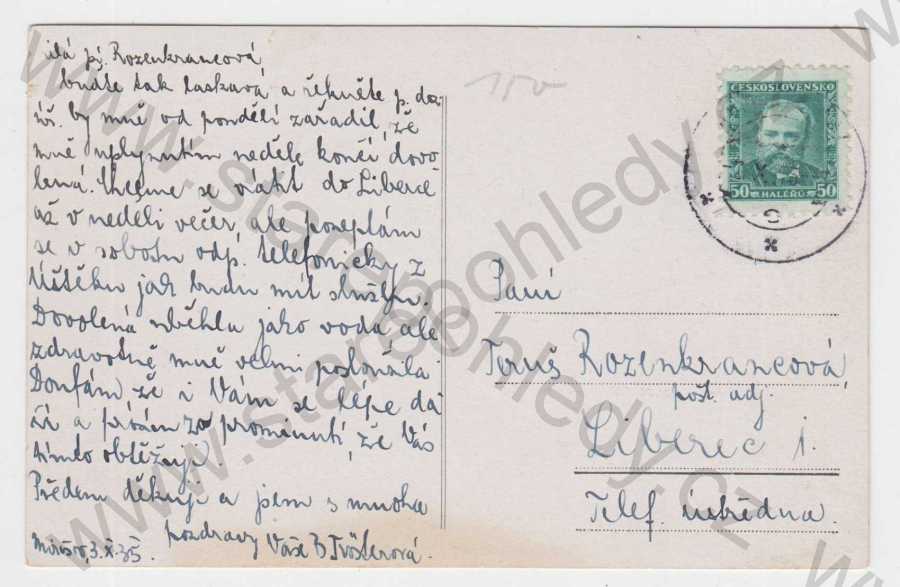 Milá pí. Rozenkrancová,
buďte tak laskavá a řekněte p. doz.
by mně od pondělí zařadil, že
mně uplynutím neděle končí dovo
lená. Chceme se vrátit do Liberce
až v neděli večer, ale pozeptám
se v sobotu odp. telefonicky z
jak budu mít službu.
Dovolená uběhla jako voda, ale
zdravotně mně velmi posloužila.
Doufám že i Vám se lépe da
ří a prosím za prominutí, že Vás
tímto obtěžuji.
Předem děkuji a jsem s mnoha
pozdravy Vaše B.
3.X.35.
150
ČESKOSLOVENSKO
50 HALÉŘŮ 50
Paní
Rozenkrancová,
pošt. adj.
Liberec 1.
Telef. ústředna.
www.starepohledy.cz